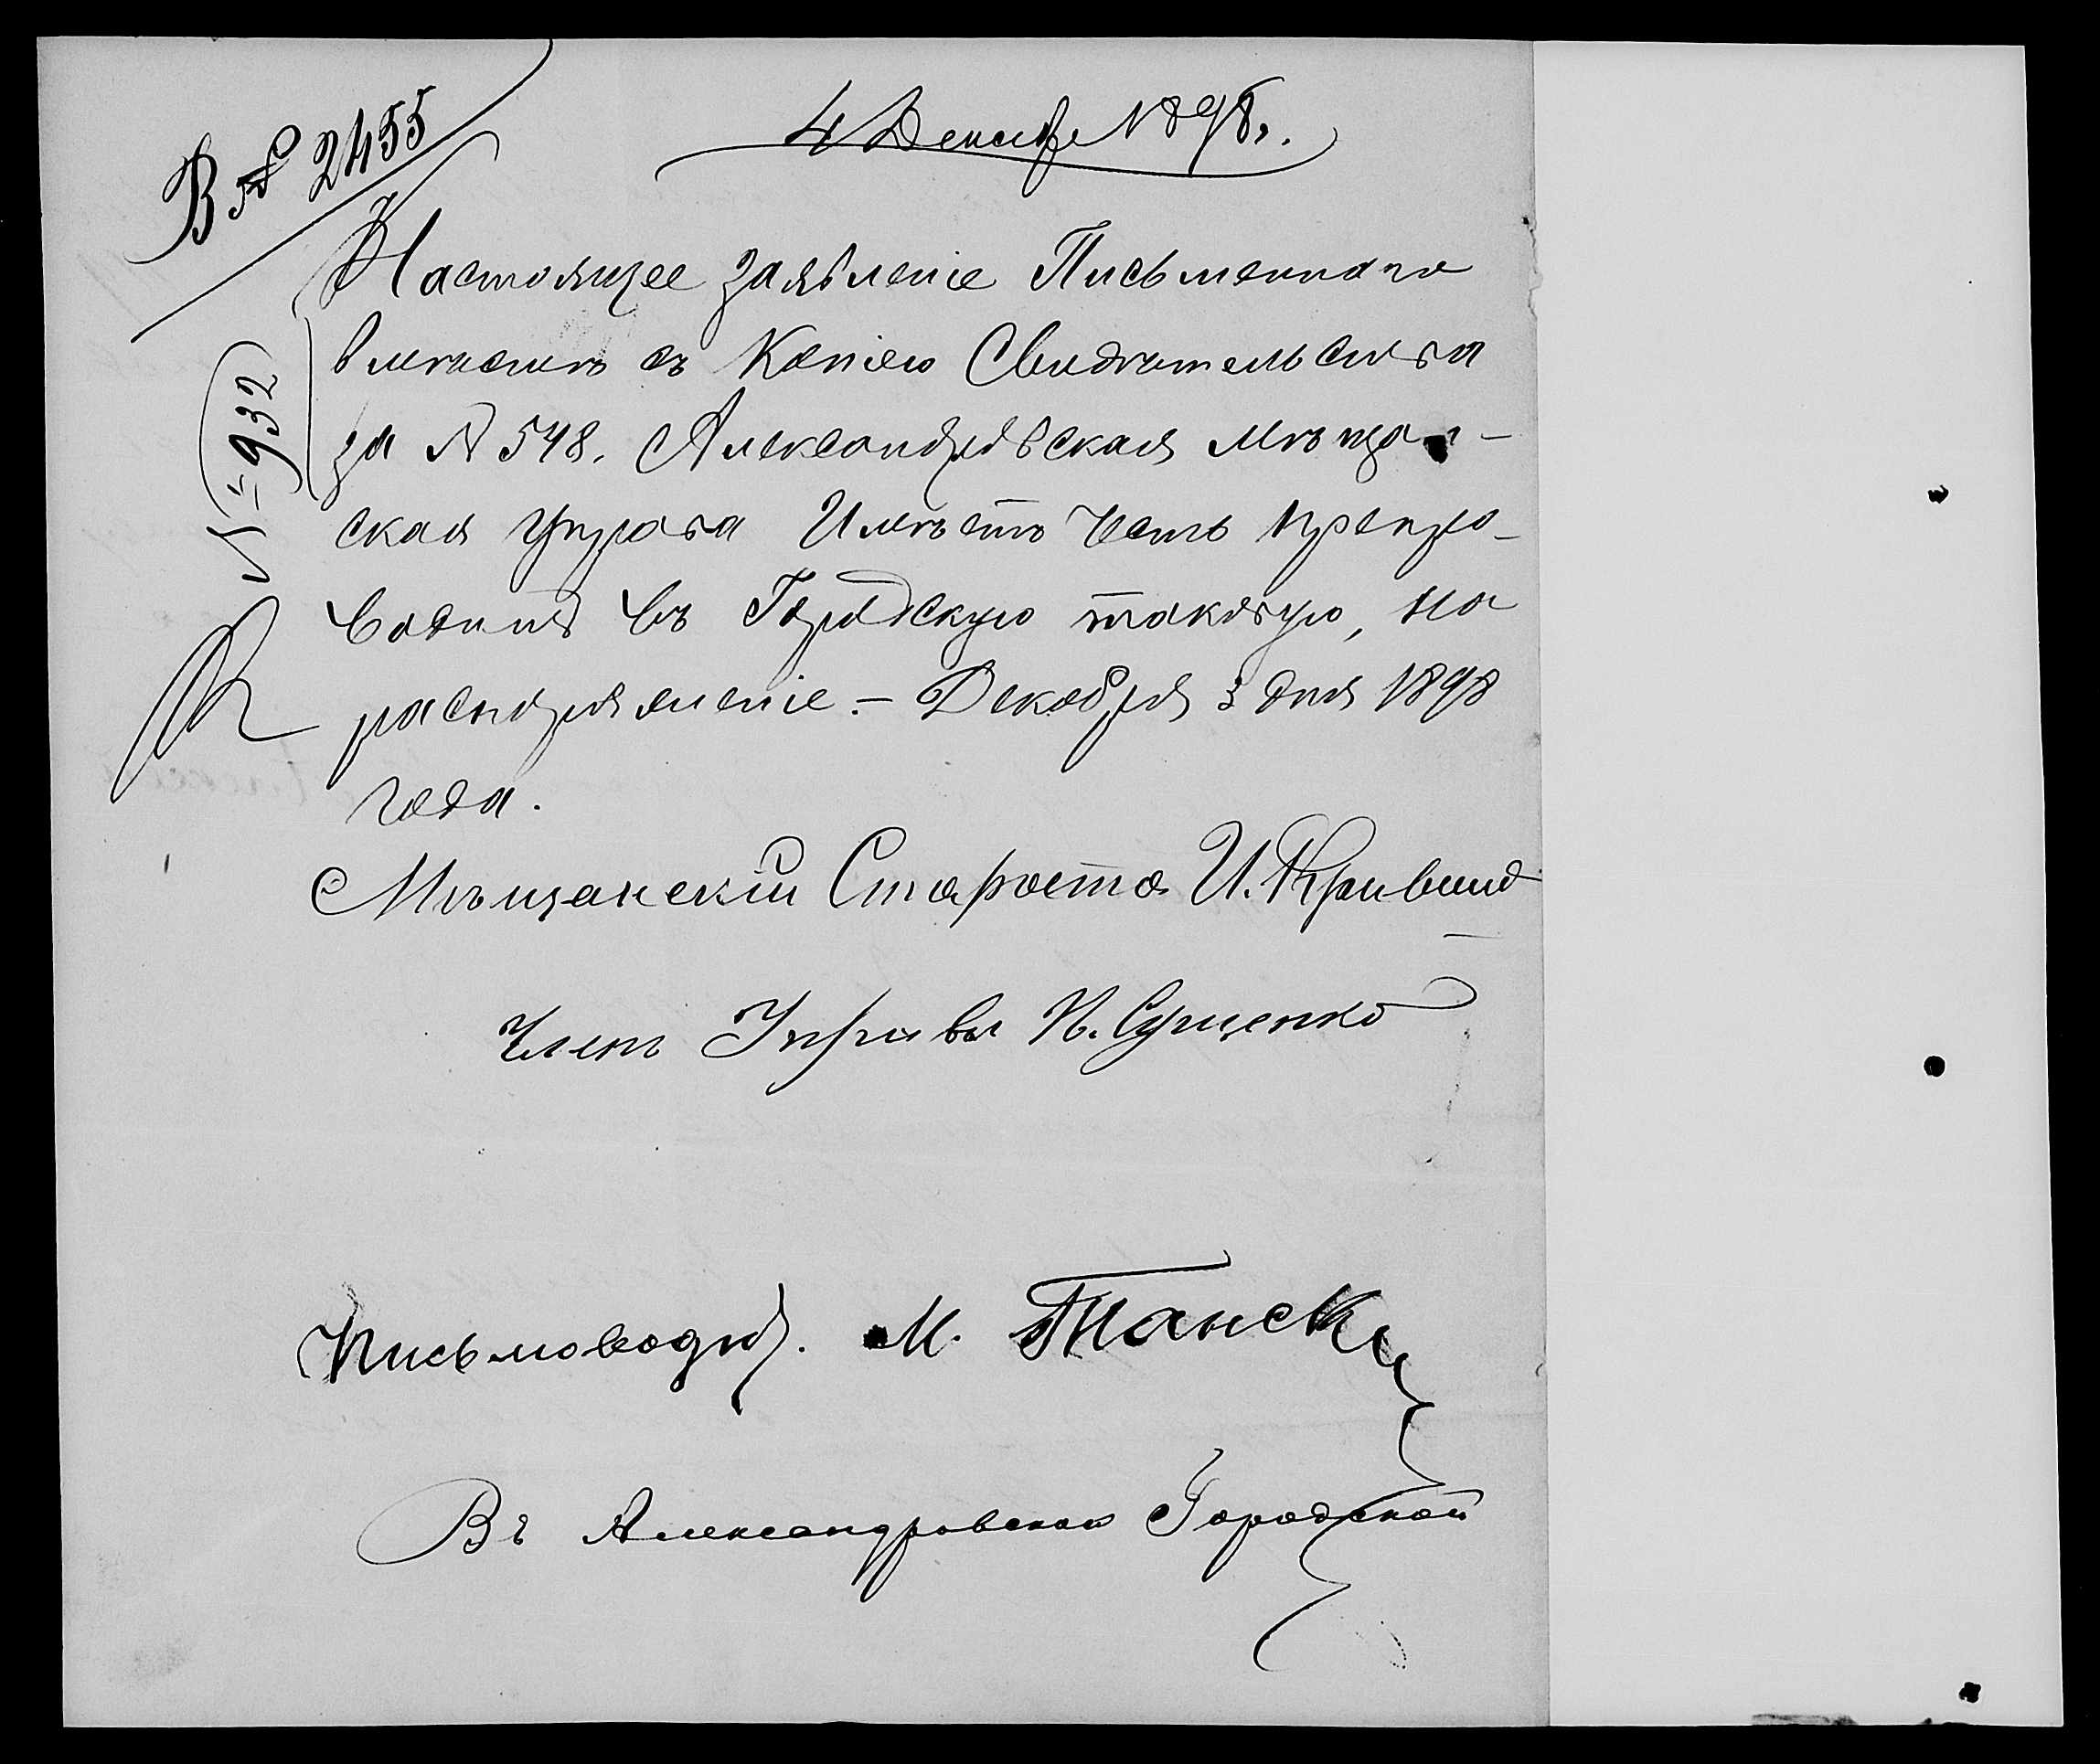 В № 2455
4 Декабр 1898.
№ 932
Настоящее заявленіе Письменнаго
вместѣ съ Копіею Свидѣтельства
за № 548. Александровская мѣщан-
ская управа Имѣетъ честь препро-
водить въ Городскую таковую, на
распоряженіе. – Декабря 3 дня 1898
года.
Мѣщанскій Староста И.
Членъ Управы И. Сущенко
Письмоводит. М. Танскій
Въ Александровской Городской